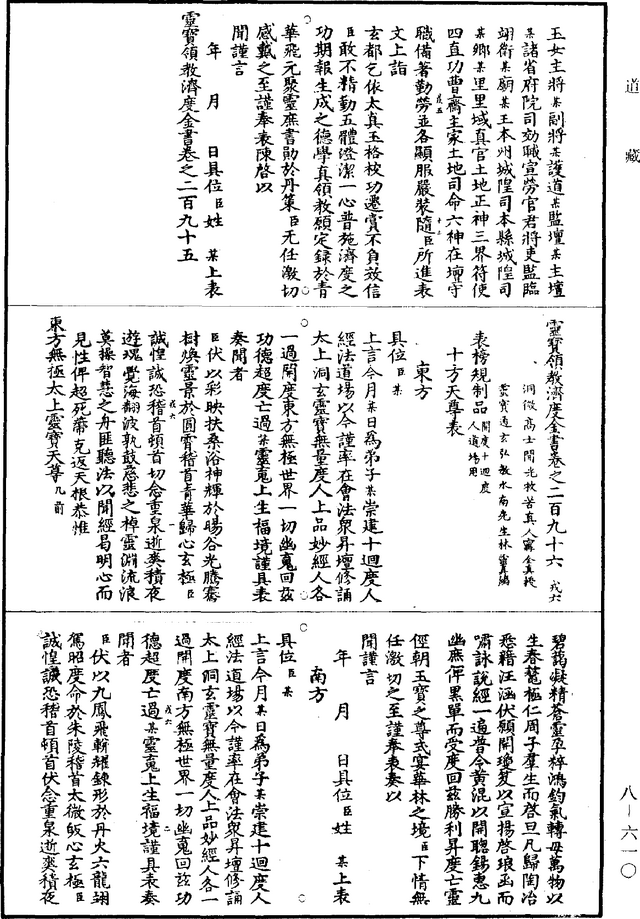 道藏
玉女主將某副將某護道某監壇某主壇
某諸省府院司効職宣勞官君將吏監臨
翊衛某廟某王本州城隍司本縣城隍司
某鄉某里里域真官土地正神三界符使
四直功曹齋主家土地司命六神在壇守
職備著勤勞並各顯服嚴裝隨臣所進表
文上詣
玄都乞依太真玉格校功遷賞不負效信
臣敢不精勤五體澄潔一心普施濟度之
功期報生成之德學真領教願定錄於青
華飛元聚靈庶書勛於丹策臣无任激切
感戴之至謹奉表陳啓以
聞謹言
年 月 日具位臣姓 某上表
靈寶領教濟度金書卷之二百九十五
靈寶領教濟度金書卷之二百九十六 戎六
洞微高士開光救苦真人甯全真授
靈寶通玄弘教水南先生林靈真編
表榜規制品 開度十迴度人道場用
十方天尊表
東方
具位臣某
上言今月某日為弟子某崇建十迴度人
經法道場以今謹率在會法眾昇壇修誦
太上洞玄靈寶無量度人上品妙經人各
一過開度東方無極世界一切幽冤回茲
功德超度亡過某靈冤上生福境謹具表
奏聞者
臣伏以彩映扶桑浴神輝於暘谷光騰騫
樹煥靈景於圓霄稽首青華歸心玄極臣
誠惶誠恐稽首頓首切念重泉逝爽積夜
遊瑰覺海翻波孰鼓慈悲之棹靈淵流浪
莫操智慧之舟匪聽法以聞經曷明心而
見性俾超死籍克返天根恭惟
東方無極太上靈寶天尊几前
碧靄凝精蒼靈孕粹鴻鈞氣轉毋萬物以
生春鰲極仁周子羣生而啓旦凡歸陶冶
悉藉汪涵伏願開瓊笈以宣揚啓琅函而
嘯詠說經一遍普令黄混以開聰錫惠九
幽庶俾黑單而受度回茲勝利昇度亡靈
徑朝玉寶之尊式宴華林之境臣下情無
任激切之至謹奉表奏以
聞謹言
年 月 日具位臣姓 某上表
南方
具位臣某
上言今月某日為弟子某崇建十迴度人
經法道場以今謹率在會法眾昇壇修誦
太上洞玄靈寶無量度人上品妙經人各一
過開度南方無極世界一切幽冤回茲功
德超度亡過某靈冤上生福境謹具表奏
聞者
臣伏以九鳳飛軿耀鍊形於丹火六龍翊
駕昭度命於朱陵稽首太微皈心玄極臣
誠惶誠恐稽首頓首伏念重泉逝爽積夜
八—六一〇